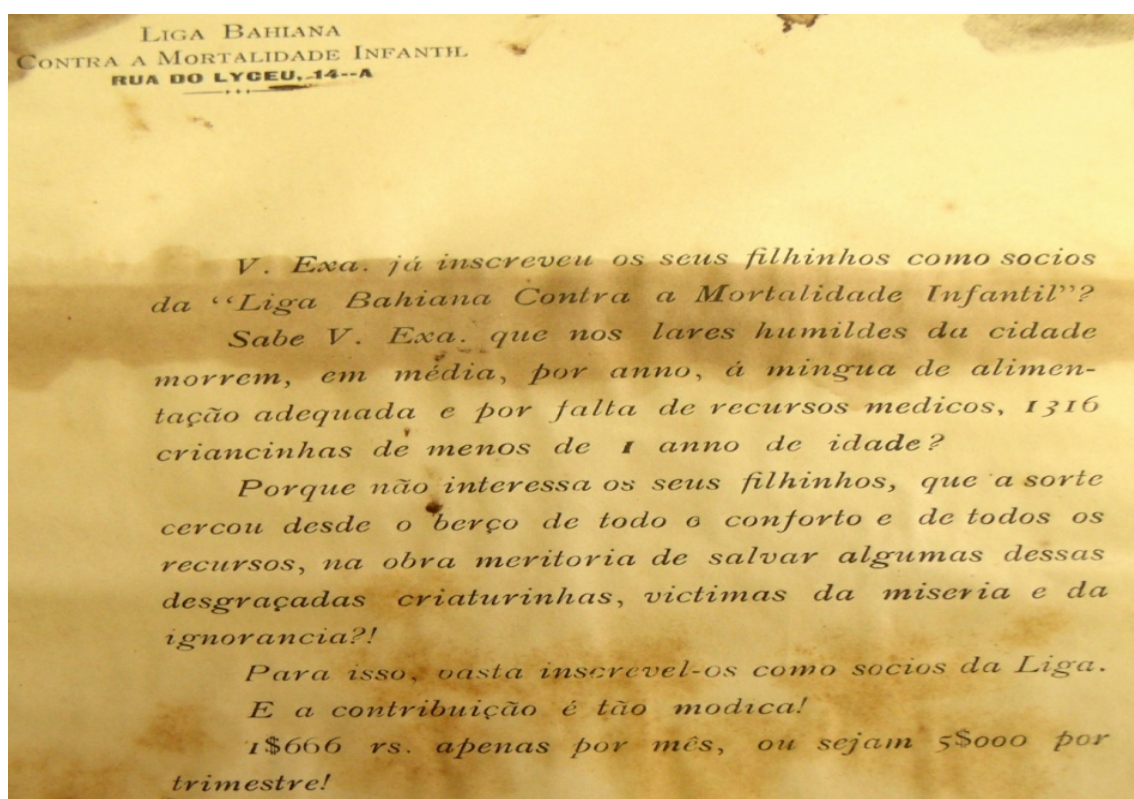 LIGA BAHIANA
CONTRA A MORTALIDADE INFANTIL
RUA DO LYCEU, 14--A
V. Exa. já inscreveu os seus filhinhos como socios
da “Liga Bahiana Contra a Mortalidade Infantil”?
Sabe V. Exa. que nos lares humildes da cidade
morrem, em média, por anno, á mingua de alimen-
tação adequada e por falta de recursos medicos, 1316
criancinhas de menos de 1 anno de idade?
Porque não interessa os seus filhinhos, que a sorte
cercou desde o berço de todo o conforto e de todos os
recursos, na obra meritoria de salvar algumas dessas
desgraçadas criaturinhas, victimas da miseria e da
ignorancia?!
Para isso, basta inscrevel-os como socios da Liga.
E a contribuição é tão modica!
1$666 rs. apenas por mês, ou sejam 5$000 por
trimestre!